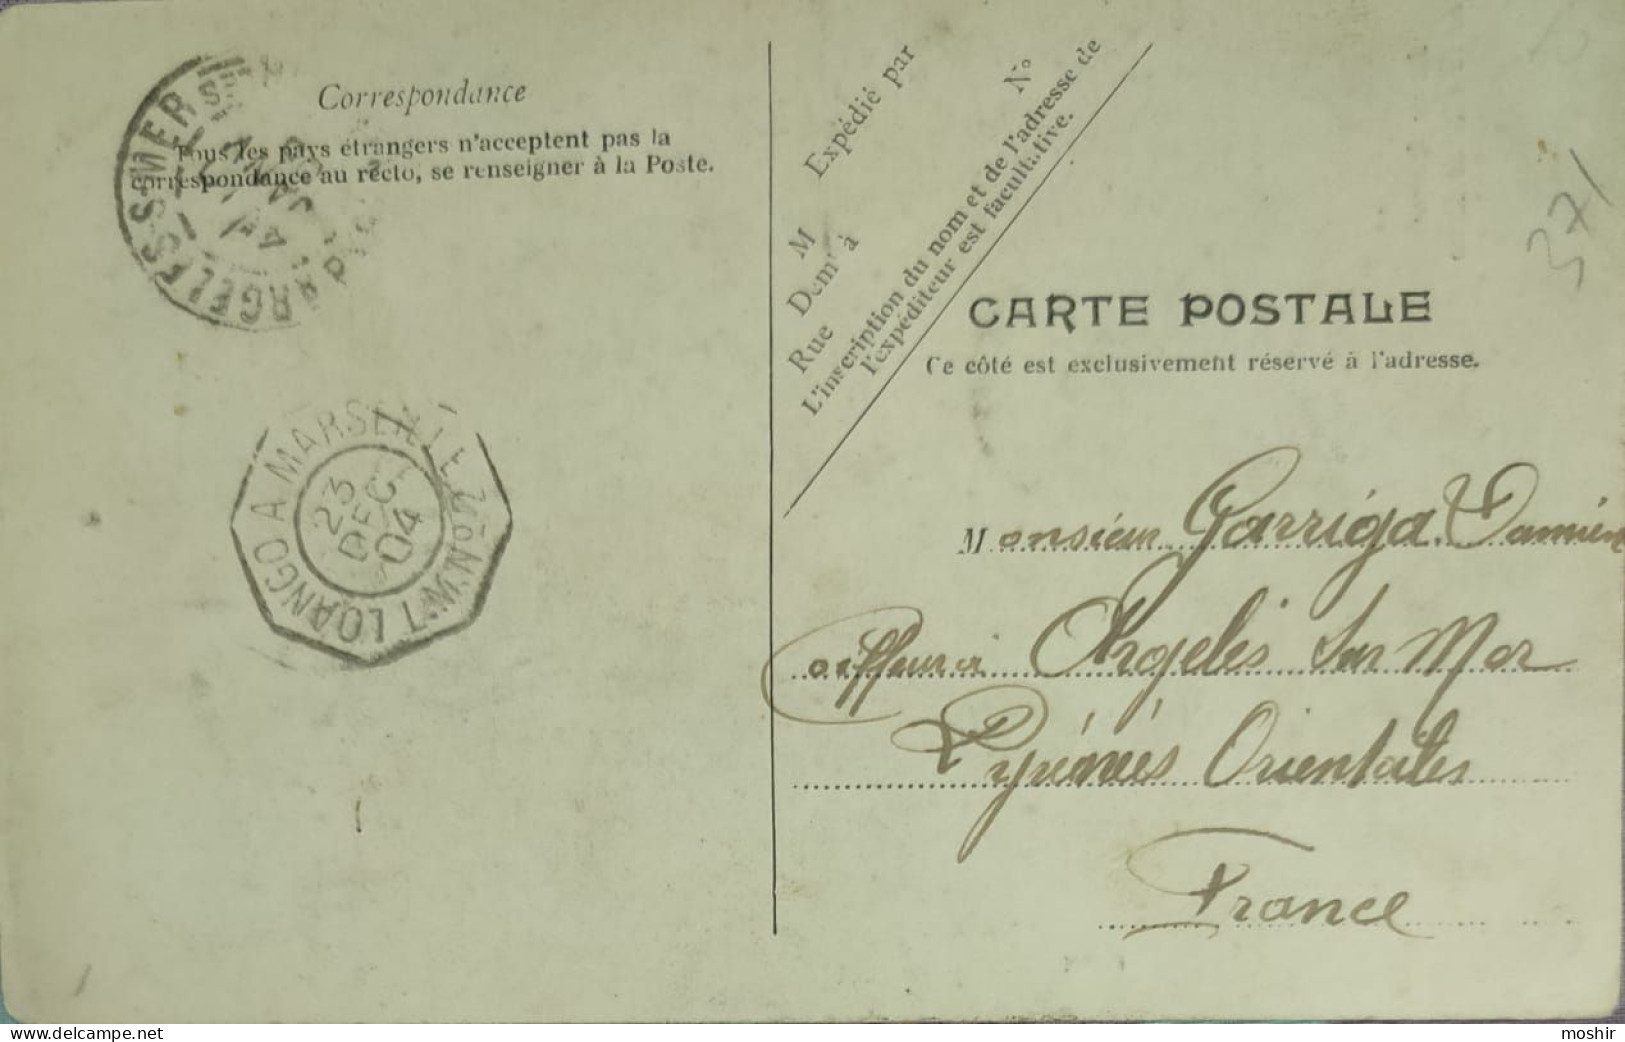 Correspondance
Tous les pays étrangers n'acceptent pas la
correspondance au recto, se renseigner à la Poste.
ARGELÈS-S-MER
JANV
LOANGO A MARSEILLE L.N
23
DEC
04
Expédié par
M
Demt à
Rue
No
L'inscription du nom et de l'adresse de
l'expéditeur est facultative.
371
CARTE POSTALE
Ce côté est exclusivement réservé à l'adresse.
Monsieur Garriga Damien
Coiffeur à Argelès Sur Mer
Pyrénées Orientales
France
www.delcampe.net
moshir